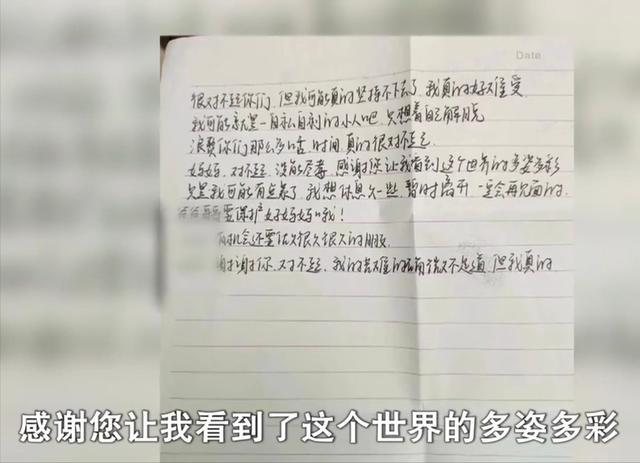 Date
很对不起你们，但我可能真的坚持不下去了，我真的好难受
我可能就是一自私自利的小人吧，只想着自己解脱
浪费你们那么多 时间，真的很对不起
妈妈，对不起，没能尽孝，感谢您让我看到这个世界的多姿多彩
只是我可能有点累了，我想休息久一些，暂时离开，一定会再见面的.
哥要保护好妈妈哦！
有机会还要做很久很久的朋友
谢谢你，对不起，我的苦难的 微不足道，但我真的
感谢您让我看到了这个世界的多姿多彩